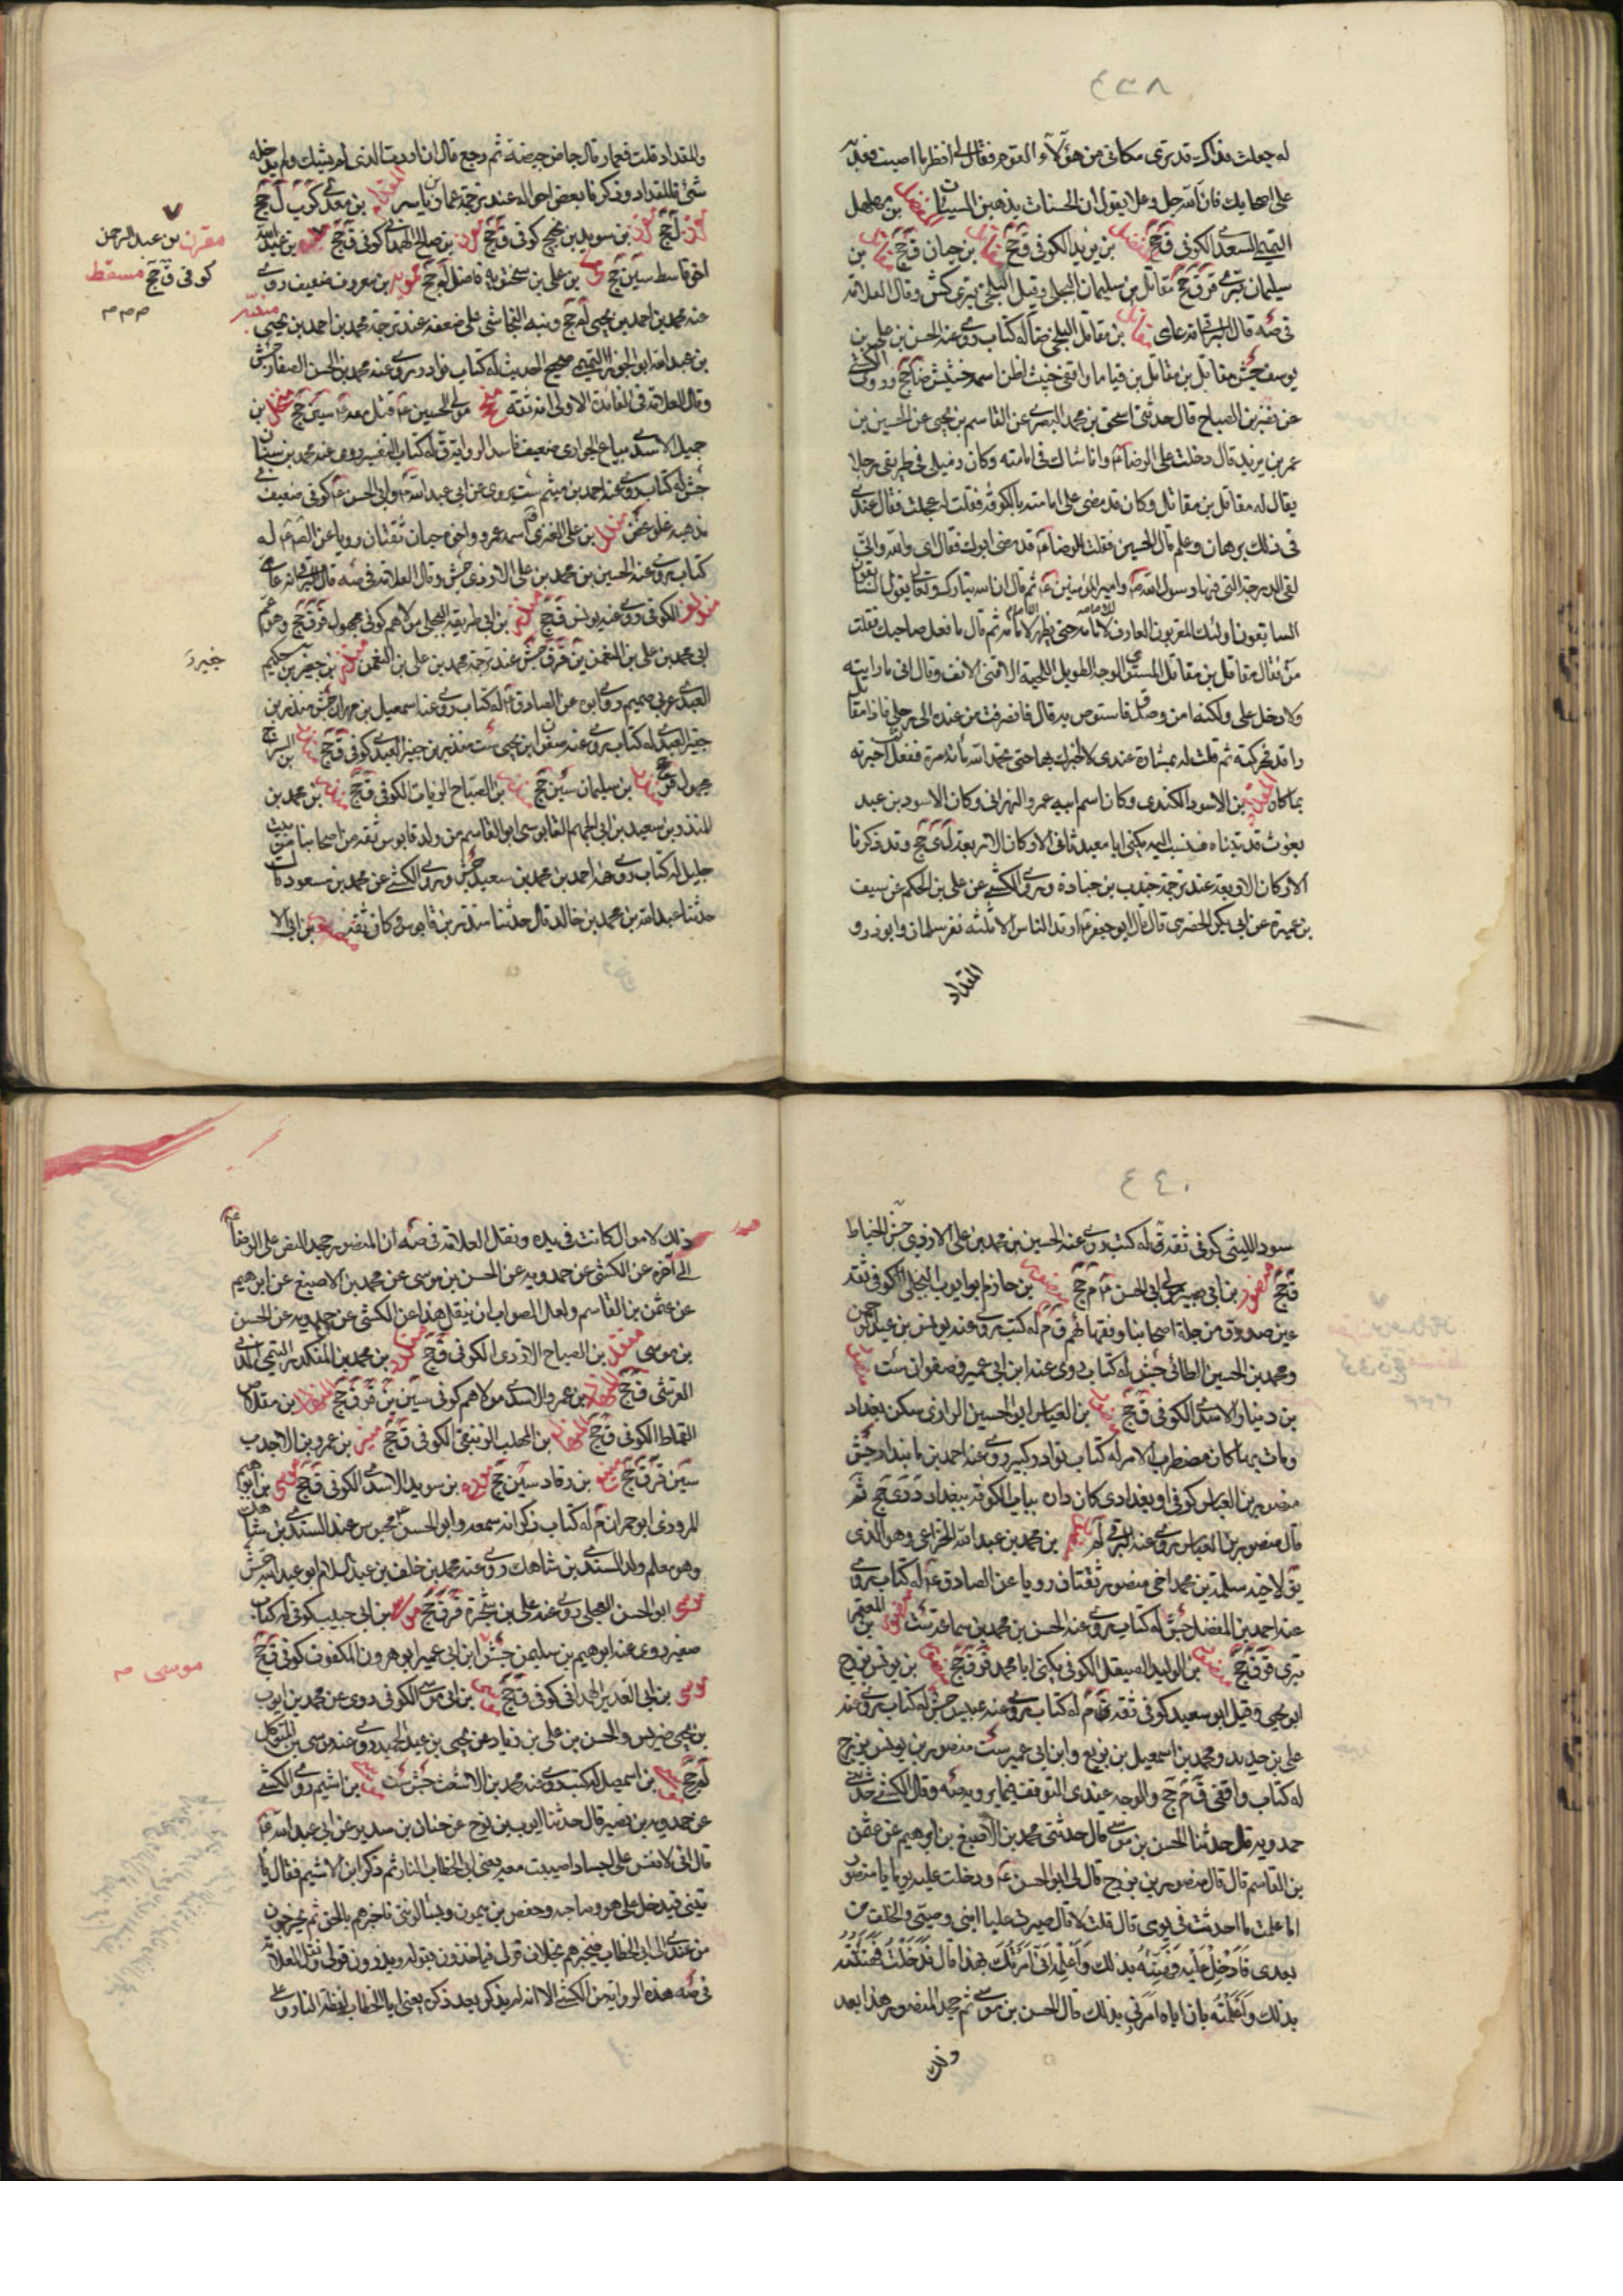 ٤٣٨
له جعلت فداك قد ترى مكاني من هؤلاء القوم فقال له انظر ما اصبت فعد به
على اصحابك فان الله جل وعلا يقول ان الحسنات يذهبن السيئات المفضل بن مهلهل
التميمي السعدي الكوفي ق جخ المفضل بن يزيد الكوفي ق جخ مقاتل بن حيان ق جخ مقاتل بن
سليمان بتري قر ق جخ مقاتل بن سليمان البجلي وقيل البلخي بتري كش وقال العلامة
في صه قال البرقي انه عامي مقاتل بن مقاتل البلخي ضا له كتاب روى عنه الحسن بن علي بن
يوسف جش مقاتل بن مقاتل بن قياما واقفي خبيث اظن اسمه خشيش ضا جخ وروى الكشي
عن نصر بن الصباح قال حدثني اسحق بن محمد البصري عن القاسم بن يحيى عن الحسين بن
عمر بن يزيد قال دخلت على الرضا ع وانا شاك في امامته وكان زميلي في طريقي رجلا
يقال له مقاتل بن مقاتل وكان قد مضى على امامته بالكوفة فقلت له عجلت فقال عندي
في ذلك برهان وعلم قال الحسين فقلت للرضا ع قد مضى ابوك فقال اي والله واني
لفي الدرجة التي فيها رسول الله ص وامير المؤمنين ع ثم قال ان الله تبارك وتعالى يقول السابقون
السابقون اولئك المقربون العارف للامامة حين يظهر الامام ثم قال ما فعل صاحبك فقلت
من فقال مقاتل بن مقاتل المسنون الوجه الطويل اللحية الاقنى الانف وقال اني ما رايته
ولا دخل علي ولكنه امن وصدق فاستوص به قال فانصرفت من عنده الى رحلي فاذا مقاتل
راقد فحركته ثم قلت له بشارة عندي لا اخبرك بها حتى تحمد الله مائة مرة ففعل اخبرته
بما كان المقداد بن الاسود الكندي وكان اسم ابيه عمرو النهراني وكان الاسود بن عبد
يغوث قد تبناه فنسب اليه يكنى ابا معبد ثاني الاركان الاربعة ل ي جخ وقد ذكرنا
الاركان الاربعة عند ترجمة جندب بن جنادة وروى الكشي عن علي بن الحكم عن سيف
بن عميرة عن ابي بكر الحضرمي قال قال ابو جعفر ع ارتد الناس الا ثلثة نفر سلمان وابو ذر و
المقداد
والمقداد قلت فعمار قال جاض جيضة ثم رجع قال ان اردت الذي لم يشك ولم يدخله
شئ فالمقداد وذكرنا بعض احواله عند ترجمة عمار بن ياسر المقدام بن معدي كرب ل جخ
ل جخ بن سويد بن نجيح كوفي ق جخ بن صالح الهمداني كوفي ق جخ بن عبد الله
اخو قاسط سين جخ بن علي بن سختويه فاضل لم جخ بن معروف ضعيف روى
عنه محمد بن احمد بن يحيى لم جخ ونبه النجاشي على ضعفه عند ترجمة محمد بن احمد بن يحيى منبه
بن عبد الله ابو الجوزا التميمي صحيح الحديث له كتاب نوادر روى عنه محمد بن الحسن الصفار جش
وقال العلامة في الفائدة الاولى انه ثقة منجح مولى الحسين ع قتل معه ع سين جخ منخل بن
جميل الاسدي بياع الجواري ضعيف فاسد الرواية ق له كتاب التفسير روى عنه محمد بن سنان
جش له كتاب روى عنه احمد بن ميثم ست يروي عن ابي عبد الله ع وابي الحسن ع كوفي ضعيف في
مذهبه غلو غض مندل بن علي العنزي اسمه عمرو واخوه حبان ثقتان رويا عن الصادق ع له
كتاب روى عنه الحسين بن محمد بن علي الازدي جش وقال العلامة في صه قال البرقي انه عامي
الكوفي روى عنه يونس ق جخ منذر بن ابي طريفة البجلي مولاهم كوفي مجهول قر ق جخ وهو عم
ابي محمد بن علي بن النعمن ين قر ق جش عند ترجمة محمد بن علي بن النعمن منذر بن جيفر بن حكيم
العبدي عربي صميم روى ابوه عن الصادق ع له كتاب روى عنه اسمعيل بن مهران جش منذر بن
جفير العبدي له كتاب روى عنه صفوان بن يحيى ست منذر بن جفير العبدي كوفي ق جخ منذر بن السراج
مجهول قر جخ منذر بن سليمان سين جخ منذر بن الصباح الزيات الكوفي ق جخ منذر بن محمد بن
المنذر بن سعيد بن ابي الجهم القابوسي ابو القاسم من ولد قابوس ثقة من اصحابنا من بيت
جليل له كتاب روى عنه احمد بن محمد بن سعيد جش وروى الكشي عن محمد بن مسعود قال
حدثنا عبد الله بن محمد بن خالد قال حدثنا منذر بن قابوس وكان ثقة منصور بن ابي الا
مقرن بن عبد الرحمن
كوفي ق جخ مسقط
م م م
جفير
٤٤٠
سود الليثي كوفي ثقة ق له كتب روى عنه الحسين بن محمد بن علي الازدي جش الخياط
ق جخ منصور بن ابي بصير مولى ابي الحسن ع م جخ منصور بن حازم ابو ايوب البجلي الكوفي ثقة
عين صدوق من جلة اصحابنا وفقهائهم ق م له كتب روى عنه يونس بن عبد الرحمن
ومحمد بن الحسين الطائي جش له كتاب روى عنه ابن ابي عمير وصفوان ست منصور
بن دينار الاسدي الكوفي ق جخ منصور بن العباس ابو الحسين الرازي سكن بغداد
ومات بها كان مضطرب الامر له كتاب نوادر كبير روى عنه احمد بن مابنداد جش
منصور بن العباس كوفي او بغدادي كان داره بباب الكوفة ببغداد د دي جخ ثم
قال منصور بن العباس روى عنه البرقي لم منصور بن محمد بن عبد الله الخزاعي وهو الذي
يق لاخيه سلمة بن محمد اخي منصور ثقتان رويا عن الصادق ع له كتاب روى
عنه احمد بن المفضل جش له كتاب روى عنه الحسن بن محمد بن سماعة ست منصور بن المعتمر
بتري قر ق جخ منصور بن الوليد الصيقل الكوفي يكنى ابا محمد قر ق جخ منصور بن يونس بزرج
ابو يحيى وقيل ابو سعيد كوفي ثقة ق م له كتاب روى عنه عبيس جش له كتاب روى عنه
علي بن حديد ومحمد بن اسمعيل بن بزيع وابن ابي عمير ست منصور بن يونس بزرج
له كتاب واقفي ق م جخ والوجه عندي التوقف فيما يرويه صه وقال الكشي حدثني
حمدويه قال حدثنا الحسن بن موسى قال حدثني محمد بن الاصبغ بن ابرهيم عن عثمن
بن القاسم قال قال منصور بن بزرج قال لي ابو الحسن ع ودخلت عليه يوما يا منصور
اما علمت ما احدثت في يومي قال قلت لا قال صيرت عليا ابني وصيتي والخلف من
بعدي فادخل عليه فهنئه بذلك واعلمه اني امرتك بهذا قال فدخلت فهنئته
بذلك واعلمته بان اباه امرني بذلك قال الحسن بن موسى ثم جحد المنصور هذا بعد
وذلك
ذلك لاموال كانت في يده ونقل العلامة في صه ان المنصور جحد النص على الرضا ع
الى آخره عن الكشي عن حمدويه عن الحسن بن موسى عن محمد بن الاصبغ عن ابرهيم
عن عثمن بن القاسم ولعل الصواب ان ينقل هذا عن الكشي عن حمدويه عن الحسن
بن موسى منقذ بن الصباح الازدي الكوفي ق جخ منكدر بن محمد بن المنكدر التيمي المدني
القرشي ق جخ المنهال بن عمرو الاسدي مولاهم كوفي سين ين قر ق جخ المنهال بن مقلاص
القماط الكوفي ق جخ المنهال بن المهلب الزينبي الكوفي ق جخ منير بن عمرو بن الاجدب
سين قر ق جخ منيع بن رقاد سين جخ مورع بن سويد الاسدي الكوفي ق جخ موسى بن ابرهيم
المروزي ابو حمران م له كتاب ذكر انه سمعه وابو الحسن ع محبوس عند السندي بن شاهك
وهو معلم ولد السندي بن شاهك روى عنه محمد بن خلف بن عبد السلام ابو عبد الله جش
موسى ابو الحسن العجلي روى عنه علي بن شجرة قر ق جخ موسى بن ابي حبيب كوفي له كتاب
صغير روى عنه ابرهيم بن سليمن جش ابن ابي عمير ابو هرون المكفوف كوفي ق جخ
موسى بن ابي الغدير الهمداني كوفي ق جخ موسى بن ابي موسى الكوفي روى عن محمد بن ايوب
بن يحيى ضريس والحسن بن علي بن زياد عن يحيى بن عبد الحميد روى عنه موسى بن المتوكل
لم جخ موسى بن اسمعيل له كتب روى عنه محمد بن الاشعث جش ست موسى بن اشيم روى الكشي
عن حمدويه بن نصير قال حدثنا ايوب بن نوح عن حنان بن سدير عن ابي عبد الله ع
قال اني لانفس على اجساد اصيبت معه يعني ابي الخطاب النار ثم ذكر ابن الاشيم فقال يا
تيني فيدخل علي هو وصاحبه وحفص بن ميمون ويسالوني فاخبرهم بالحق ثم يخرجون
من عندي الى ابي الخطاب فيخبرهم بخلاف قولي فياخذون بقوله ويذرون قولي ونقل العلامة
في صه هذه الرواية من الكشي الا انه لم يذكر بعد ذكره يعني ابا الخطاب لفظة النار وو
موسى م